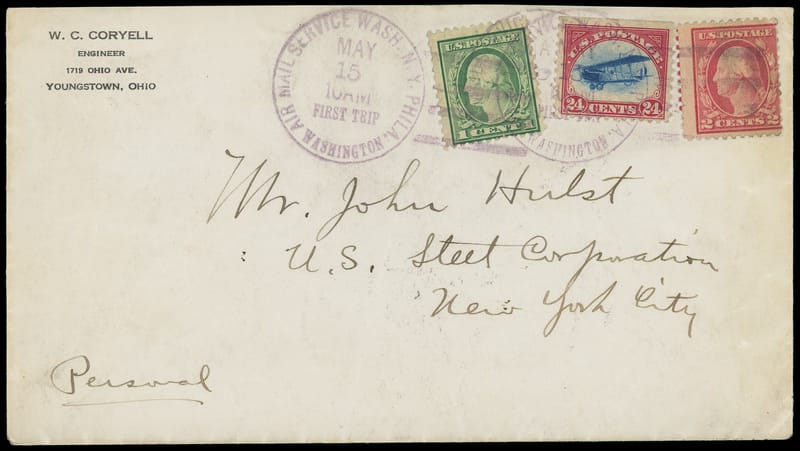 W. C. CORYELL
ENGINEER
1719 OHIO AVE.
YOUNGSTOWN, OHIO
AIR MAIL SERVICE WASH. N.Y. PHILA.
MAY
15
10AM
FIRST TRIP
WASHINGTON
U.S. POSTAGE
1 CENTS
WASHINGTON
U.S. POSTAGE
24 CENTS 24
U.S. POSTAGE
2 CENTS 2
Mr. John Hulst
U.S. Steel Corporation
New York City
Personal